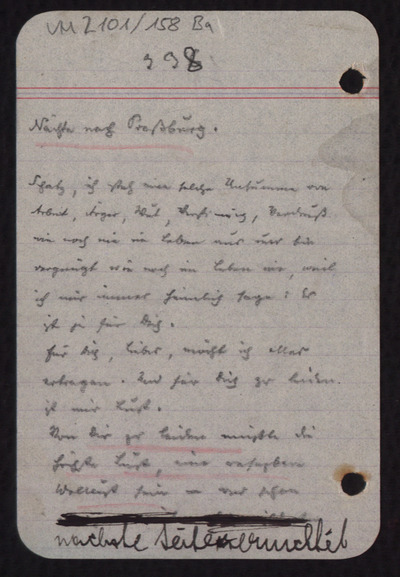 VM 2101/158 Ba
398
Nächte nach Preßburg.
Schatz, ich hab eine solche Unsumme von
Arbeit, Ärger, Wut, Verdruß
wie noch nie im Leben und bin
vergnügt wie noch im Leben nie, weil
ich mir immer heimlich sage: Es
ist ja für Dich.
Für Dich, Lieber, möcht ich Alles
ertragen. Und für Dich zu leiden
ist mir Lust.
Von Dir zu leiden müßte die
höchste Lust, eine
Wollust sein
nächste Seite vernichtet